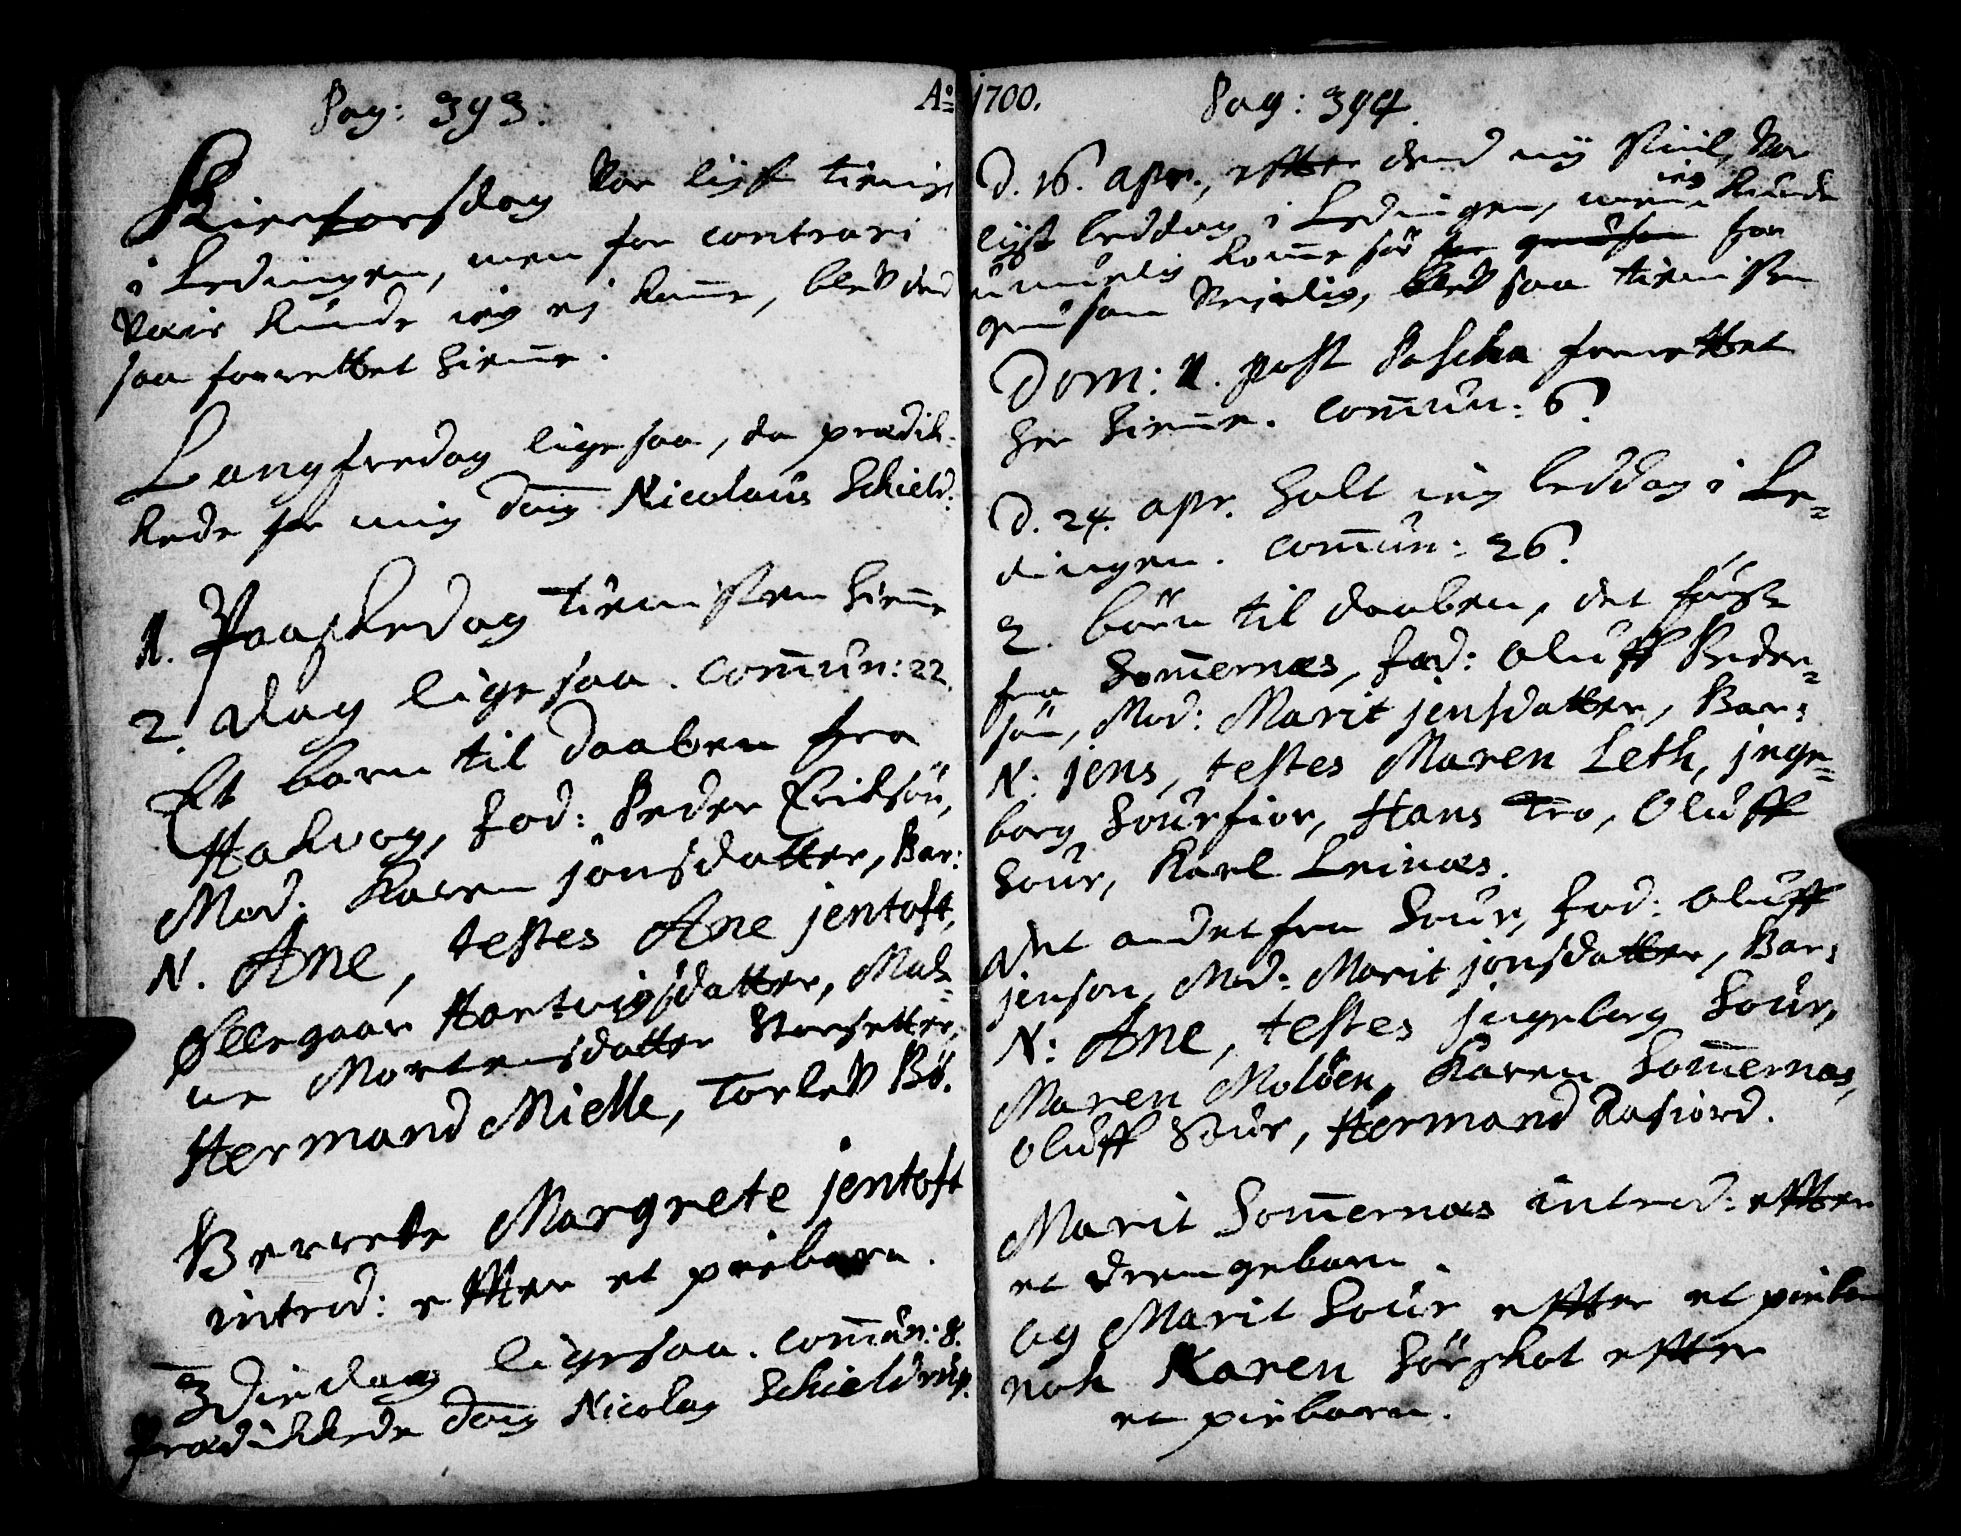 Pag: 393.
Skiersorsdag var lyst tienist
i Ledingen, men for contrari
Vair kunde ieg ej kome, blev ded
saa forrettet hieme.
Langfredag ligesaa, da prædik-
kede for mig Dng Nicolaus Schield.
1. Paaskedag tienisten hieme
2. dag ligesaa. Comun: 22.
Et barn til daaben fra
Hakvog, Fad: Peder Eriksön,
Mod: Karen jonsdatter, Bar:
N. Ane, testes Ane jentoft,
Ellegaar Hartvigsdatter, Mal=
ne Mortensdatter
Hermand Mielle, Torlev Bö.
Berrete Margrete jentoft
introd: efter et piebarn.
3die dag ligesaa. Comun: 8.
Prædikkede Dng Nicolay Schieldrup.
Ao 1700.
Pag: 394.
D. 16. apr., efter dend ny Stiil, var
lyst beddag i Ledingen, men ieg kunde
umuelig kome för for
saa tienisten
Dom: 1. post Pascha forrettet
her hieme. Comun: 6.
D. 24. apr. holt ieg beddag i Le=
dingen. Comun: 26.
2. börn til daaben, det förste
fra Somernæs, Fad: Oluff Peder=
sön, Mod: Marit jensdatter, Bar:
N: jens, testes Maren Leth, jnge=
borg Sourfior, Hans Tro, Oluff
Sour, Karl Leinæs.
Det andet fra Sour, Fad: Oluff
jenson, Mod: Marit jonsdatter, Bar:
N: Ane, testes jngeborg Sour,
Maren Molöen, Karen Somernæs,
Oluff Sour, Hermand Kafiord.
Marit Somernæs introd: efter
et drengebarn.
og Marit Sour efter et piebarn
nok Karen Sörskot efter
et piebarn.